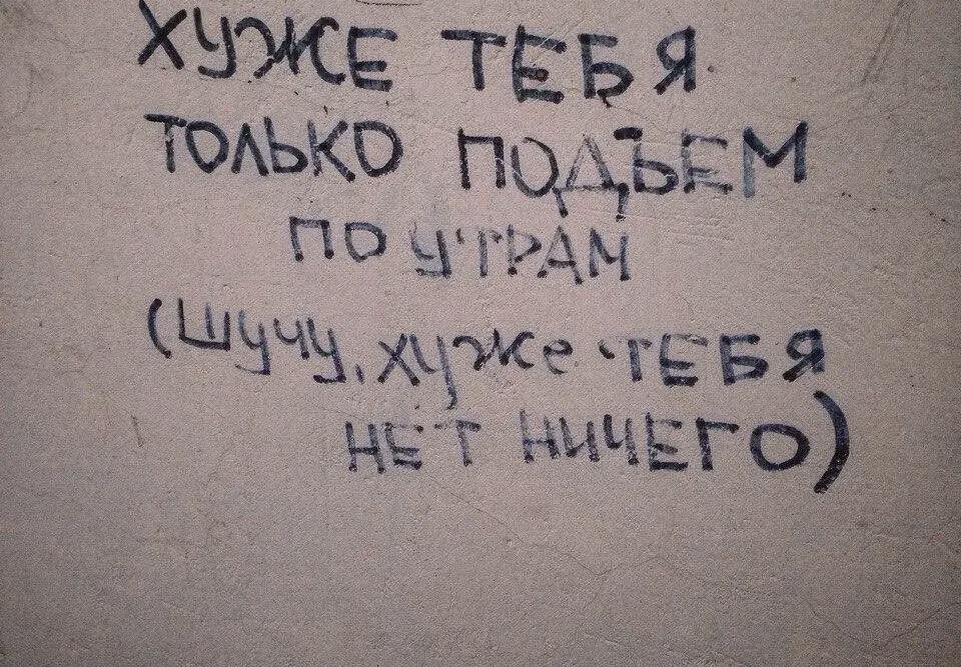 ХУЖЕ ТЕБЯ
ТОЛЬКО ПОДЪЕМ
ПО УТРАМ
(Шучу, хуже ТЕБЯ
НЕТ НИЧЕГО)